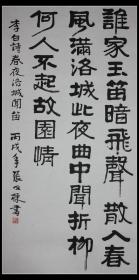 誰家玉笛暗飛聲散入春
風滿洛城此夜曲中聞折柳
何人不起故園情
李白詩春夜洛城聞笛 丙戌年張
書